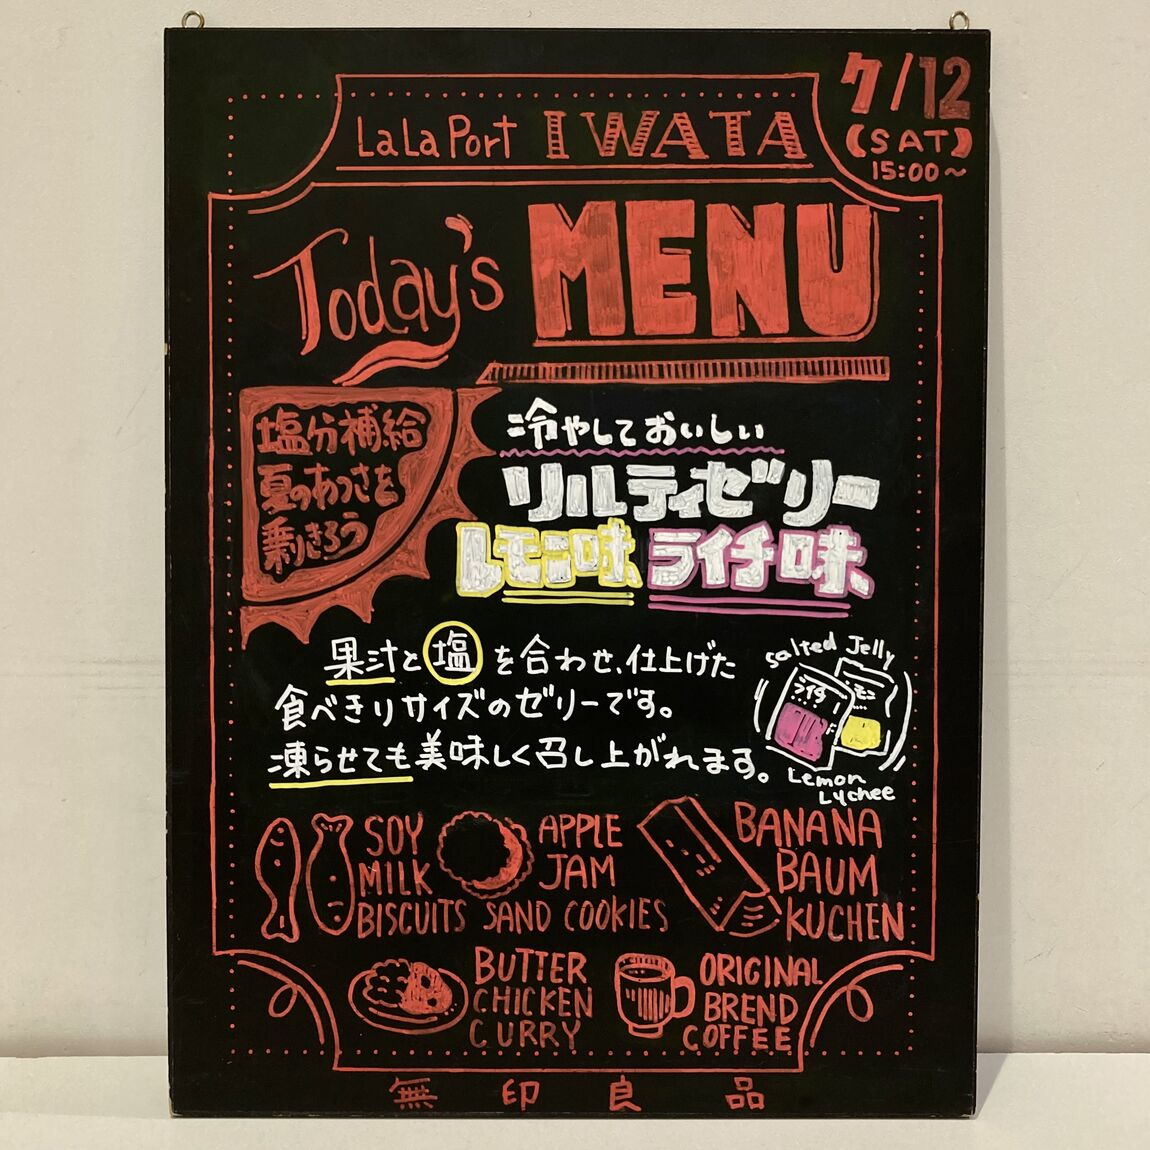 7/12
(SAT)
15:00~
LaLa Port IWATA
Today's MENU
塩分補給
夏のあつさを
乗りきろう
冷やしておいしい
ソルティゼリー
レモン味 ライチ味
果汁と塩を合わせ、仕上げた
食べきりサイズのゼリーです。
凍らせても美味しく召し上がれます。
Salted Jelly
ライチ
レモン
Lemon
Lychee
SOY
MILK
BISCUITS
APPLE
JAM
SAND COOKIES
BANANA
BAUM
KUCHEN
BUTTER
CHICKEN
CURRY
ORIGINAL
BREND
COFFEE
無印良品